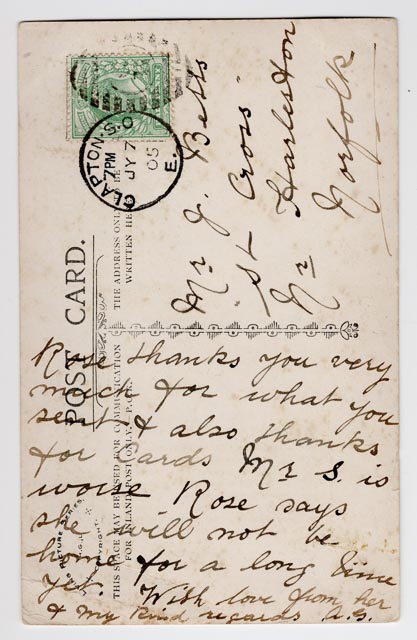 POST CARD.
THE ADDRESS ONLY TO BE
WRITTEN HERE.
THIS SPACE MAY BE USED FOR COMMUNICATION
FOR INLAND POST ONLY.
CLAPTON. S.O
7 PM
JY 7
05
E.
Mr J. Betts
St Cross
Nr Harleston
Norfolk
Rose thanks you very
much for what you
sent & also thanks
for cards Mr S. is
worse Rose says
she will not be
home for a long time
yet. With love from her
& my kind regards A.G.